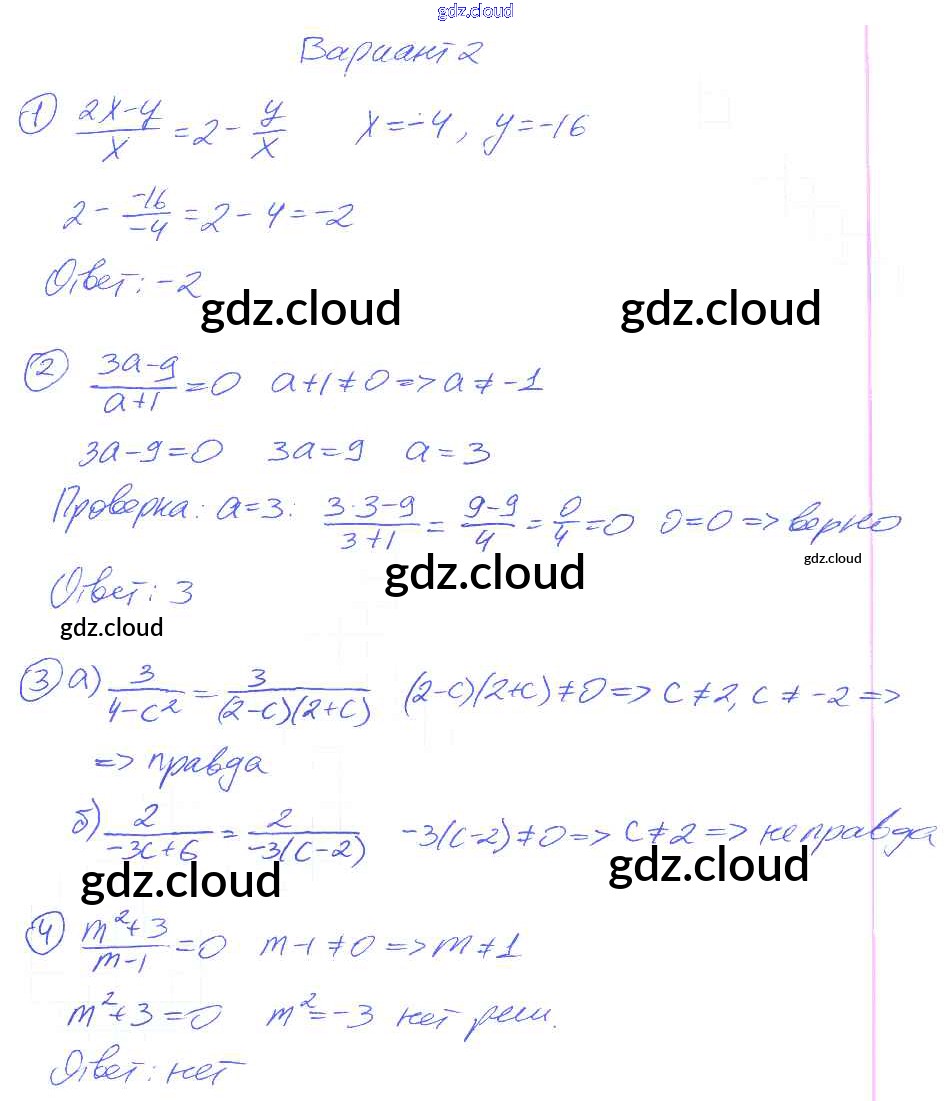 gdz.cloud
Вариант 2
① (2x-y)/x = 2 - y/x x=-4, y=-16
2 - (-16)/(-4) = 2 - 4 = -2
Ответ: -2
gdz.cloud gdz.cloud
② (3a-9)/(a+1) = 0 a+1≠0 => a≠-1
3a-9=0 3a=9 a=3
Проверка: a=3: (3·3-9)/(3+1) = (9-9)/4 = 0/4 = 0 0=0 => верно
gdz.cloud
gdz.cloud
Ответ: 3
gdz.cloud
③ а) 3/(4-c²) = 3/((2-c)(2+c)) (2-c)(2+c)≠0 => c≠2, c≠-2 =>
=> правда
б) 2/(-3c+6) = 2/(-3(c-2)) -3(c-2)≠0 => c≠2 => неправда
gdz.cloud gdz.cloud
④ (m²+3)/(m-1) = 0 m-1≠0 => m≠1
m²+3=0 m²=-3 нет реш.
Ответ: нет